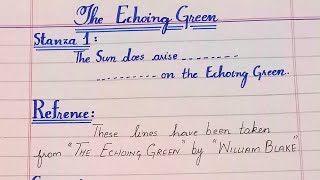 The Echoing Green
Stanza 1:
The Sun does arise ---------
--------- on the Echoing Green..
Refrence:
These lines have been taken
from "THE ECHOING GREEN" by "WILLIAM BLAKE"